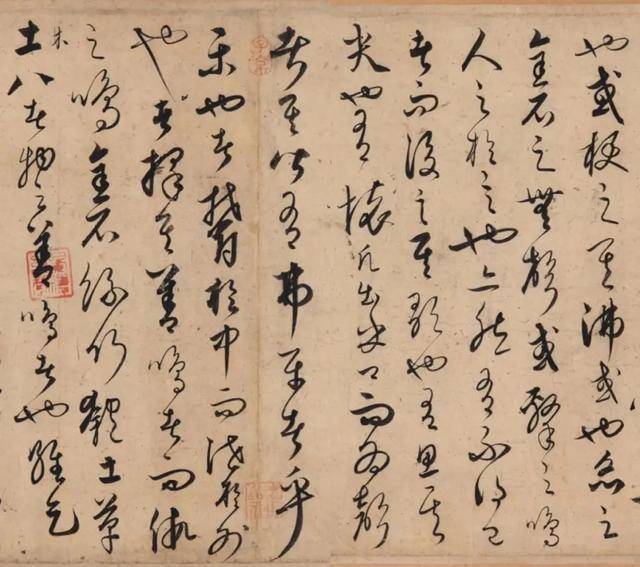 也或梗之其沸或也炙之
金石之無聲或擊之鳴
人之於言也亦然有不得已
者而後言其歌也有思其
哭也有懷凡出乎口而為聲
者其皆有弗平者乎
樂也者鬱於中而泄於外
也者擇其善鳴者而假
之鳴金石絲竹匏土草
木
土八者物之善鳴者也維天